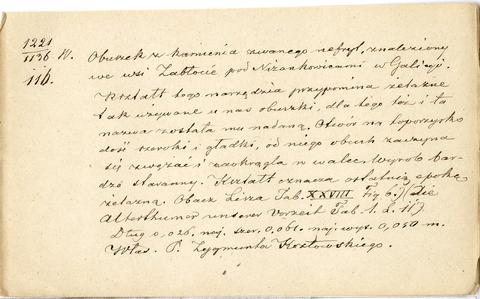 1221
1136 N. Obuszek z kamienia zwanego nefryt, znaleziony
116. we wsi Zabłocie pod Niżankowicami w Galicyi.
Kształt tego narzędzia przypomina żelazne
tak używane u nas obuszki, dla tego też i ta
nazwa została mu nadaną. Otwór na toporzysko
dość szeroki i gładki, od niego obuch zaczyna
się zwężać i zaokrągla w walec. Wyrób bar-
dzo staranny. Kształt oznacza ostatnią epokę
żelazną. Obacz Tab. XXVIII Fig 6. /Die
Alterthümer unserer Vorzeit Tab. 1. 2. 11/
Dług 0,026. naj. szer. 0,061. naj. wys. 0,050 m.
Włas. P. Zygmunta Kozłowskiego.